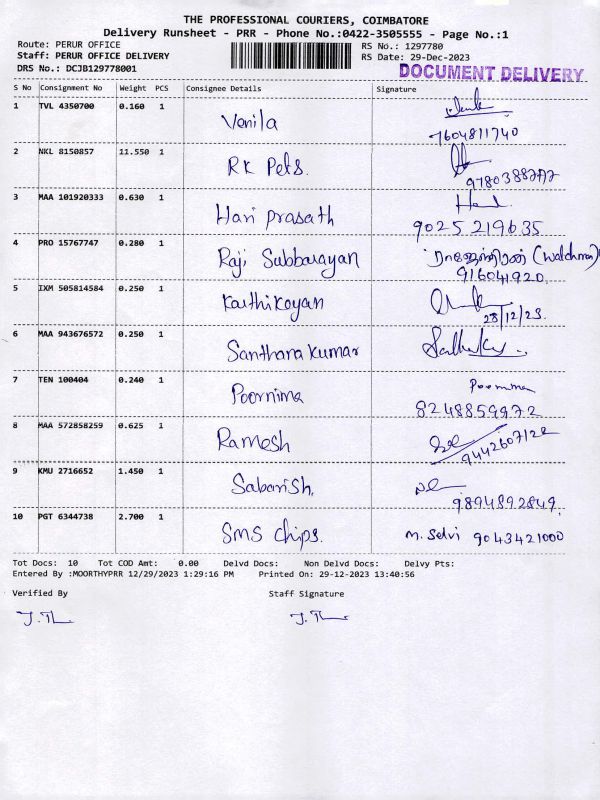 THE PROFESSIONAL COURIERS, COIMBATORE
Delivery Runsheet - PRR - Phone No.:0422-3505555 - Page No.:1
Route: PERUR OFFICE RS No.: 1297780
Staff: PERUR OFFICE DELIVERY RS Date: 29-Dec-2023
DRS No.: DCJB129778001 DOCUMENT DELIVERY
S No Consignment No Weight PCS Consignee Details Signature
1 TVL 4350700 0.160 1 Venila
7604811740
2 NKL 8150857 11.550 1 RK Pets.
3 MAA 101920333 0.630 1 Hari prasath
9025219635
4 PRO 15767747 0.280 1 Raji Subbarayan (watchman)
916041920
5 IXM 505814584 0.250 1 Karthikeyan
28/12/23
6 MAA 943676572 0.250 1 Santhana kumar
7 TEN 100404 0.240 1 Poornima Poornima
8248859972
8 MAA 572858259 0.625 1 Ramesh
9442607122
9 KMU 2716652 1.450 1 Sabarish.
9894892849
10 PGT 6344738 2.700 1 SMS chips. M. Selvi 9043421000
Tot Docs: 10 Tot COD Amt: 0.00 Delvd Docs: Non Delvd Docs: Delvy Pts:
Entered By :MOORTHYPRR 12/29/2023 1:29:16 PM Printed On: 29-12-2023 13:40:56
Verified By Staff Signature